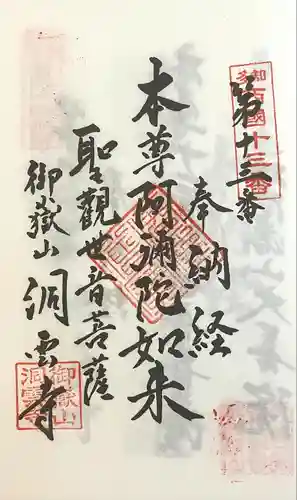 第十三番
奉納経
本尊阿彌陀如来
聖觀世音菩薩
御嶽山洞雲寺
知多西國十三番
御嶽山洞雲寺